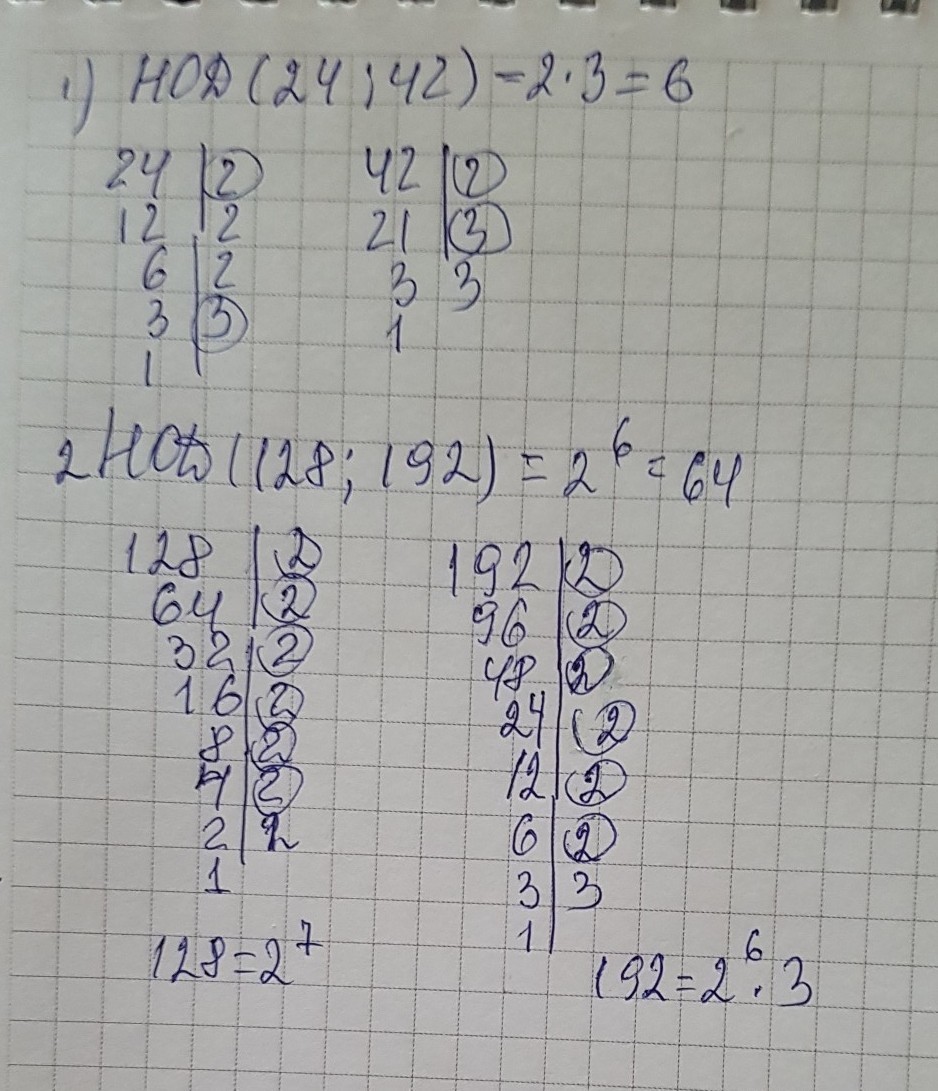 1) НОД (24; 42) = 2 · 3 = 6
24 | 2 42 | 2
12 | 2 21 | 3
6 | 2 3 3
3 | 3 1
1 |
2 НОД (128; 192) = 2⁶ = 64
128 | 2 192 | 2
64 | 2 96 | 2
32 | 2 48 | 2
16 | 2 24 | 2
8 | 2 12 | 2
4 | 2 6 | 2
2 | 2 3 | 3
1 1 |
128 = 2⁷ 192 = 2⁶ · 3